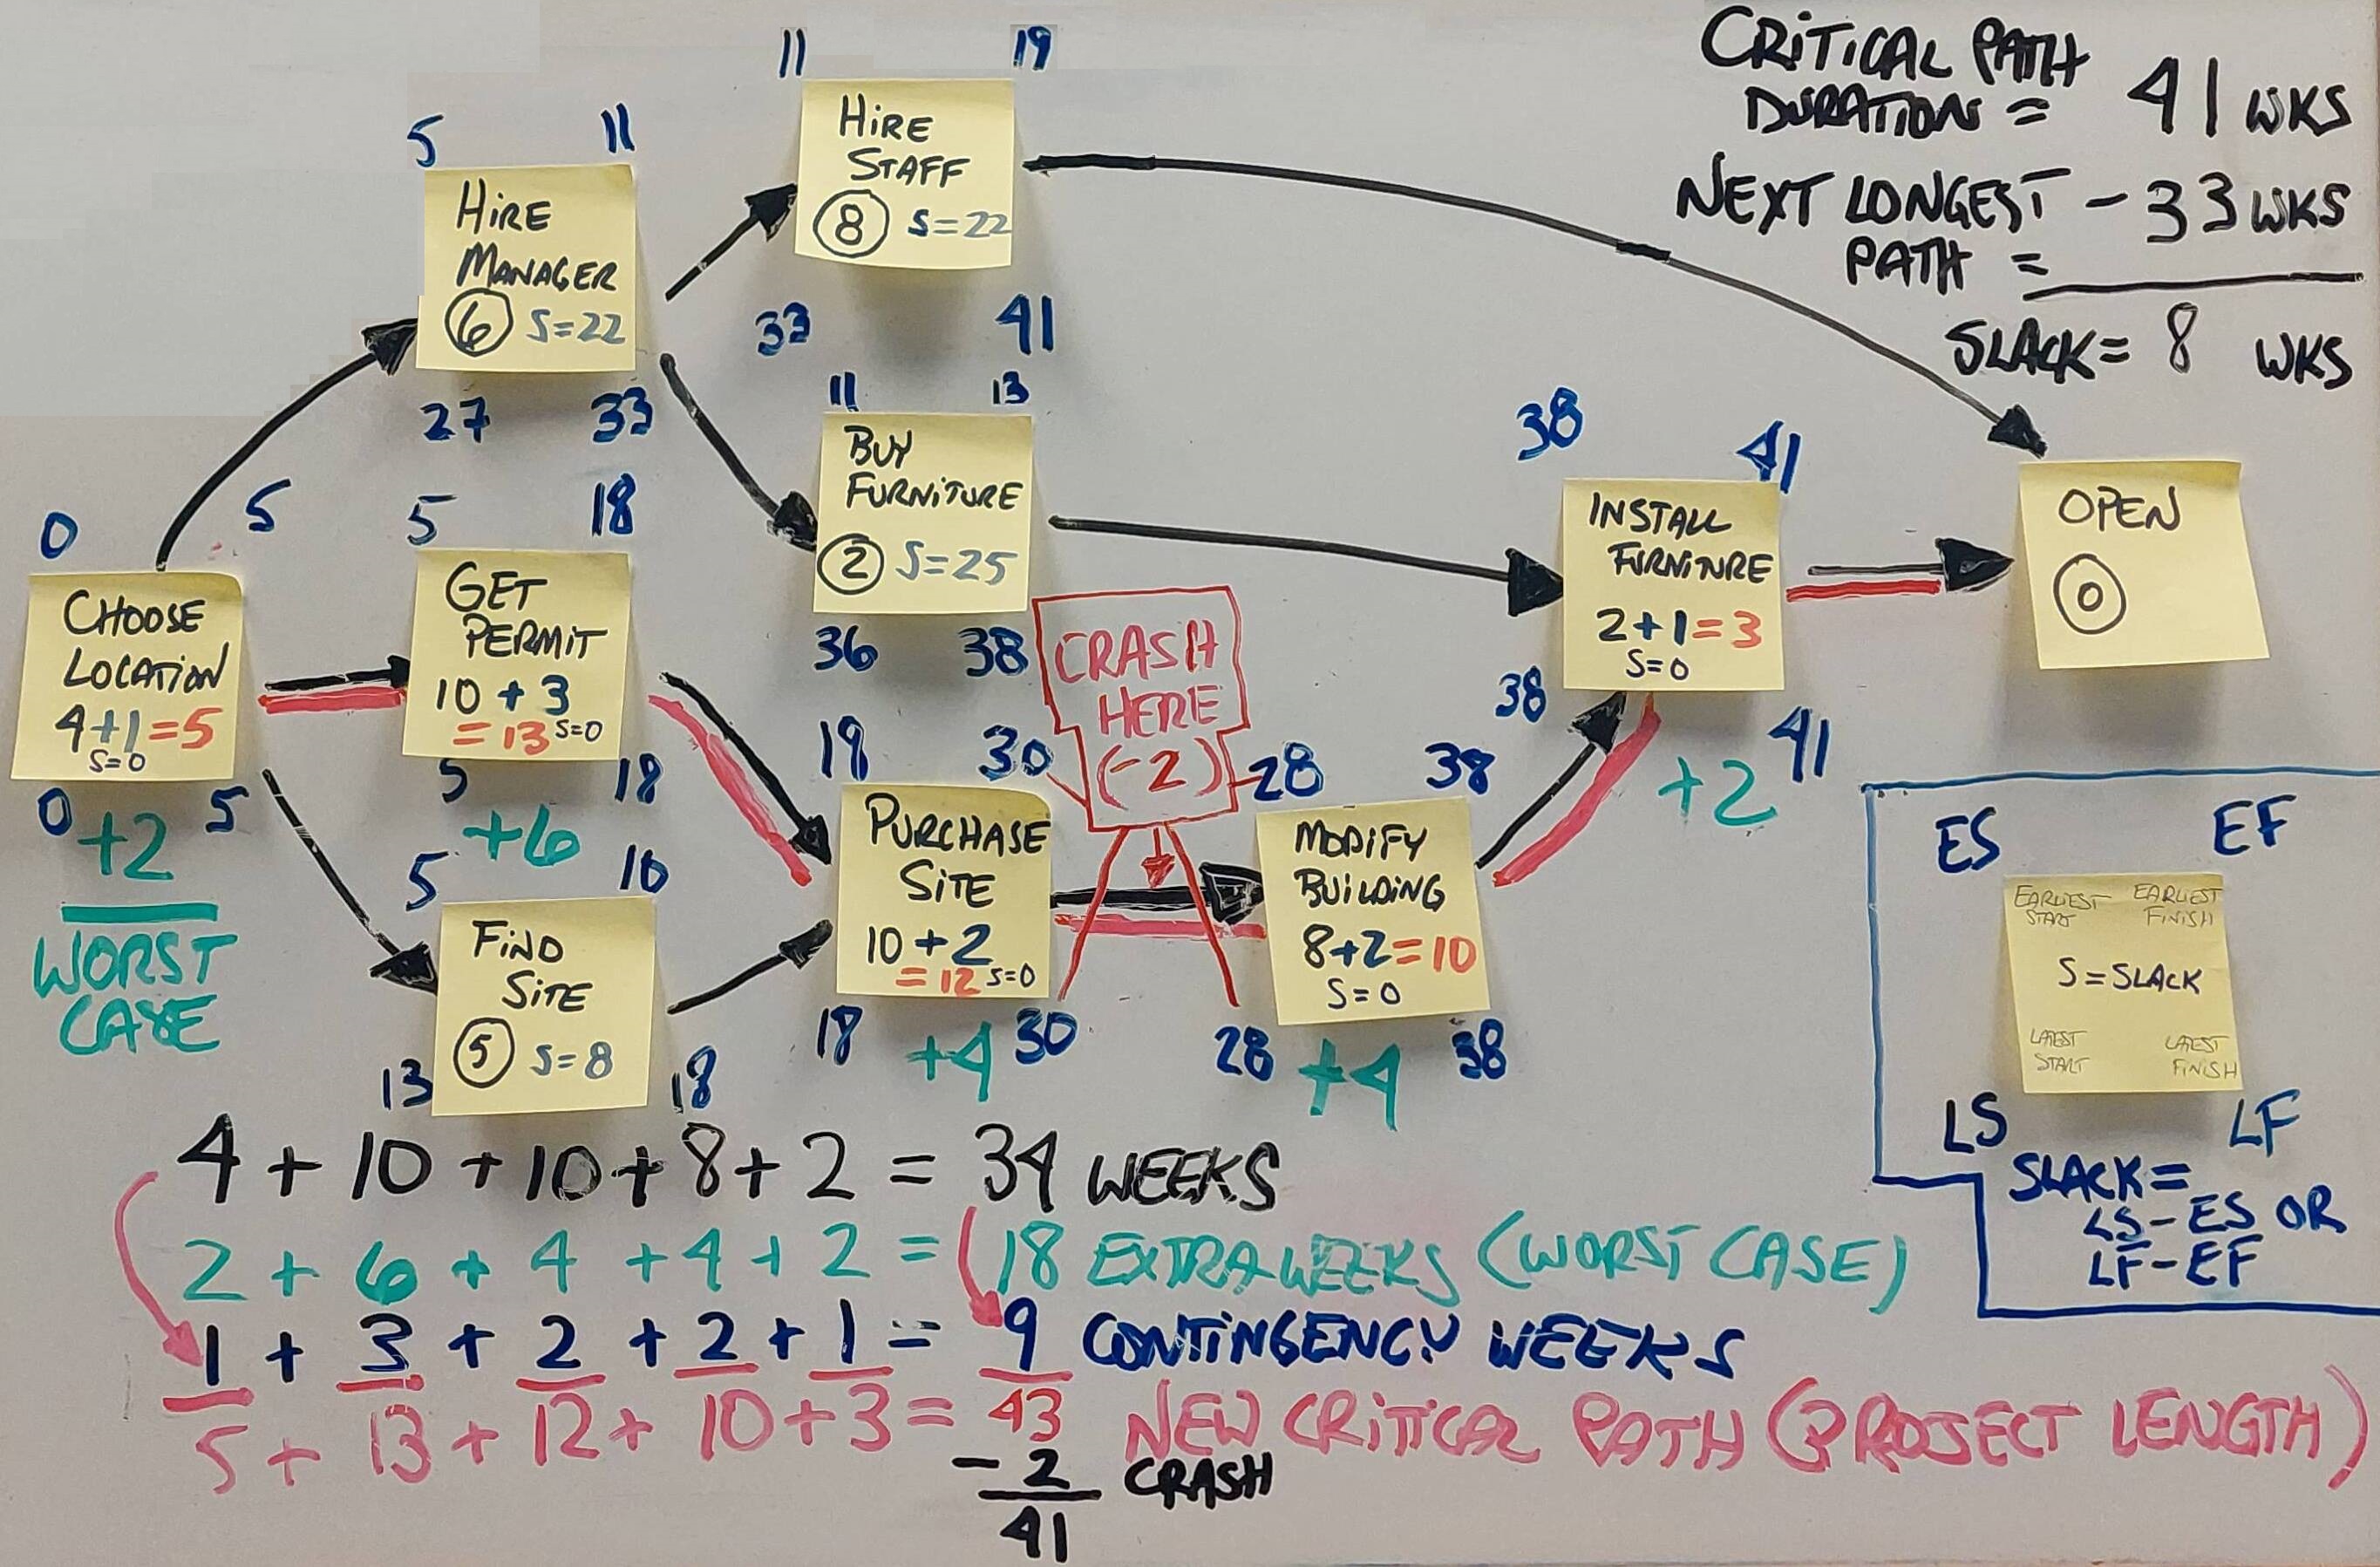 CRITICAL PATH
DURATION = 41 WKS
NEXT LONGEST - 33 WKS
PATH =
SLACK = 8 WKS
11 19
HIRE
STAFF
8 S=22
33 41
5 11
HIRE
MANAGER
6 S=22
27 33
11 13
BUY
FURNITURE
2 S=25
36 38
0 5
CHOOSE
LOCATION
4+1=5
S=0
0 5
+2
WORST
CASE
5 18
GET
PERMIT
10 + 3
= 13 S=0
5 18
+6
5 10
FIND
SITE
5 S=8
13 18
18 30
PURCHASE
SITE
10 + 2
= 12 S=0
18 30
+4
CRASH
HERE
(-2)
28 38
MODIFY
BUILDING
8+2=10
S=0
28 38
+4
38 41
INSTALL
FURNITURE
2+1=3
S=0
38 41
+2
OPEN
0
ES EF
EARLIEST START EARLIEST FINISH
S=SLACK
LATEST START LATEST FINISH
LS LF
SLACK=
LS-ES OR
LF-EF
4 + 10 + 10 + 8 + 2 = 34 WEEKS
2 + 6 + 4 + 4 + 2 = 18 EXTRA WEEKS (WORST CASE)
1 + 3 + 2 + 2 + 1 = 9 CONTINGENCY WEEKS
5 + 13 + 12 + 10 + 3 = 43 NEW CRITICAL PATH (PROJECT LENGTH)
- 2 CRASH
41